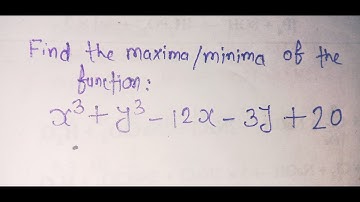 Find the maxima/minima of the
function:
x³ + y³ - 12x - 3y + 20